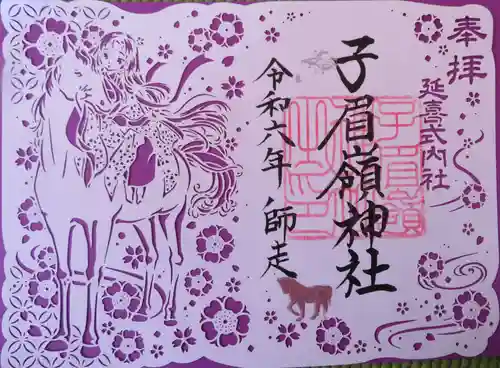 奉拝
延喜式内社
子眉嶺神社
子眉嶺
神社
之印
令和六年 師走